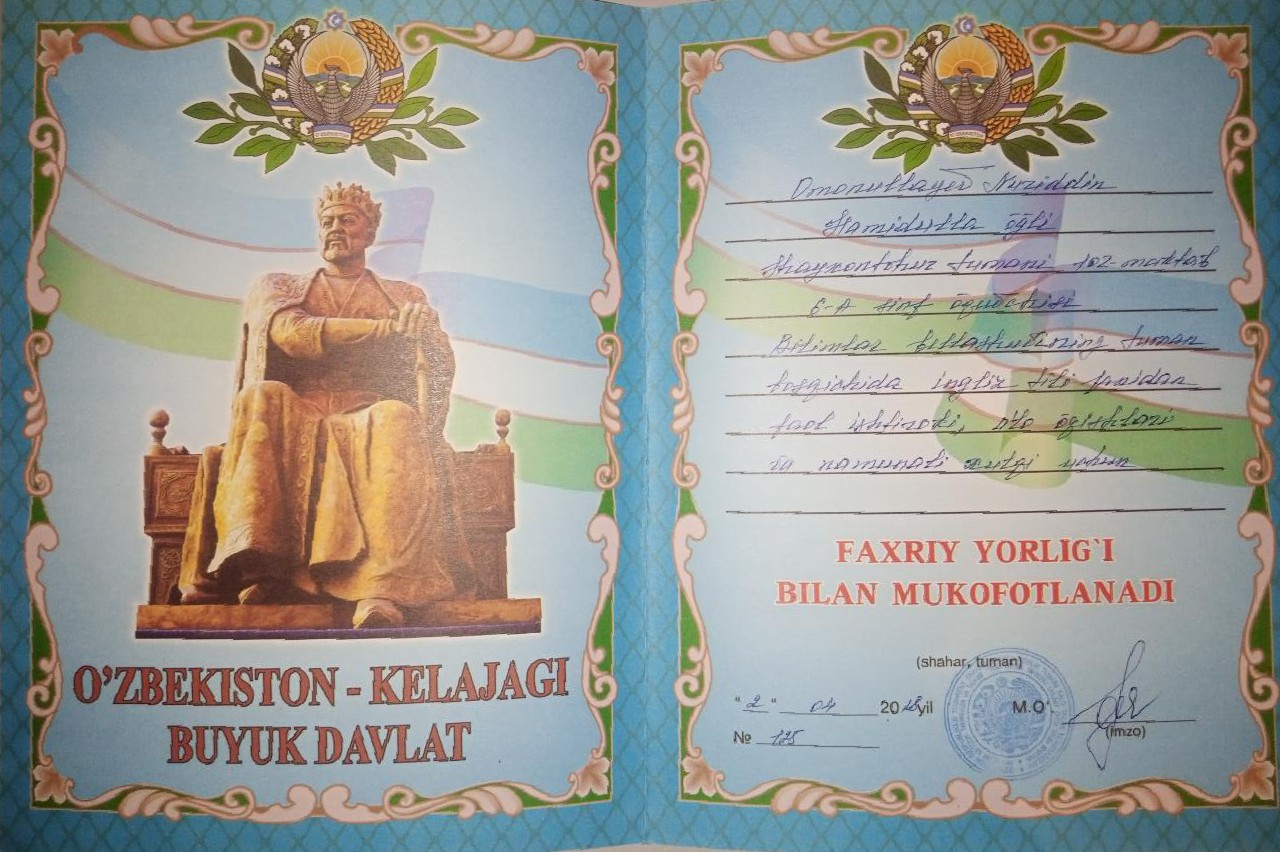 O'ZBEKISTON - KELAJAGI
BUYUK DAVLAT
Omonullayev Nuriddin
Hamidulla o'g'li
Shayxontohur tumani 102-maktab
6-A sinf
Bilimlar bellashuvining tuman
bosqichida ingliz tili fanidan
faol ishtiroki, a'lo
va namunali xulqi uchun
FAXRIY YORLIG`I
BILAN MUKOFOTLANADI
(shahar, tuman)
"2" 04 20 yil M.O'
(imzo)
№ 125